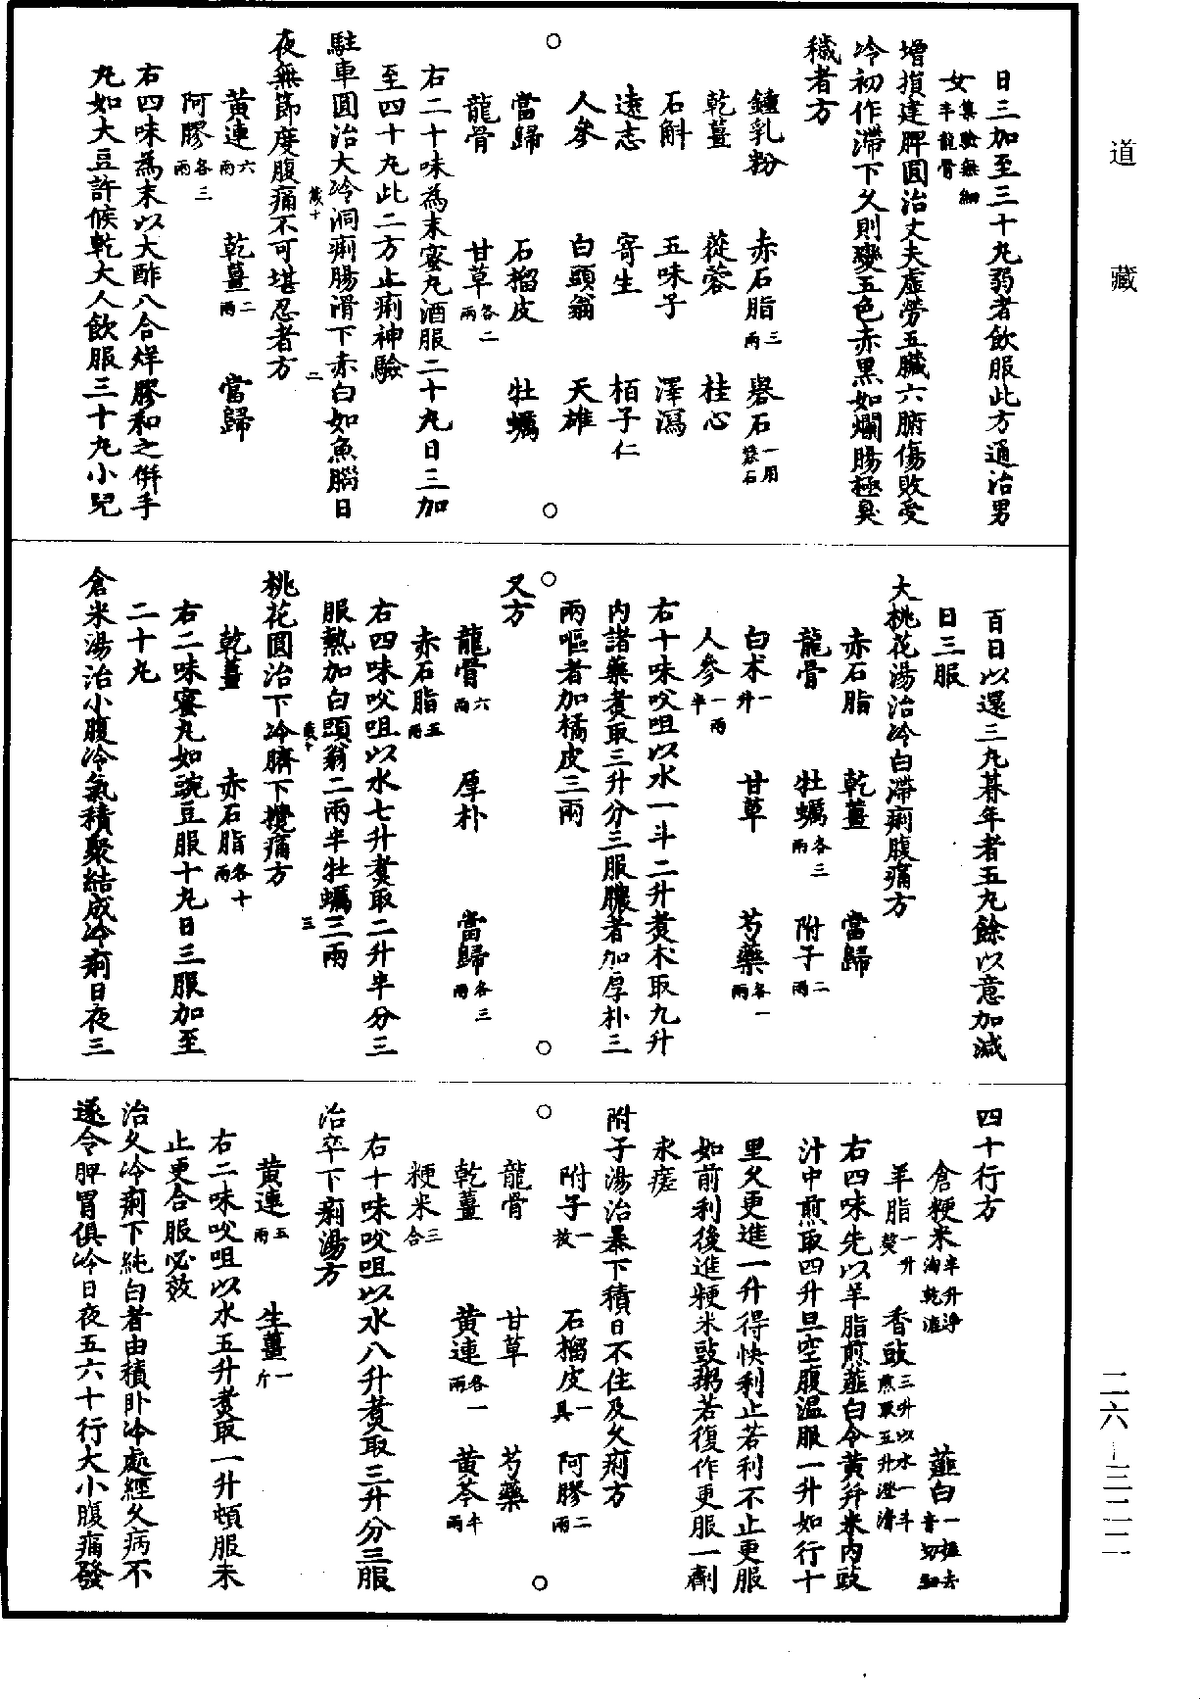 道藏
日三加至三十丸弱者飲服此方通治男
女集驗無細辛龍骨
增損建脾圓治丈夫虛勞五臟六腑傷敗受
冷初作滯下久則變五色赤黑如爛腸極臭
穢者方
鍾乳粉 赤石脂三兩 礜石一用礬石
乾薑 蓯蓉 桂心
石斛 五味子 澤瀉
遠志 寄生 栢子仁
人參 白頭翁 天雄
當歸 石榴皮 牡蠣
龍骨 甘草各二兩
右二十味為末蜜丸酒服二十丸日三加
至四十丸此二方止痢神驗
駐車圓治大冷洞痢腸滑下赤白如魚腦日
夜無節度腹痛不可堪忍者方
黃連六兩 乾薑二兩 當歸
阿膠各三兩
右四味為末以大酢八合烊膠和之併手
丸如大豆許候乾大人飲服三十丸小兒
百日以還三丸朞年者五丸餘以意加減
日三服
大桃花湯治冷白滯痢腹痛方
赤石脂 乾薑 當歸
龍骨 牡蠣各三兩 附子二兩
白朮一升 甘草 芍藥各一兩
人參一兩半
右十味㕮咀以水一斗二升煑朮取九升
內諸藥煑取三升分三服膿者加厚朴三
兩嘔者加橘皮三兩
又方
龍骨六兩 厚朴 當歸各三兩
赤石脂五兩
右四味㕮咀以水七升煑取二升半分三
服熱加白頭翁二兩半牡蠣三兩
桃花圓治下冷臍下攪痛方
乾薑 赤石脂各十兩
右二味蜜丸如豌豆服十丸日三服加至
二十丸
倉米湯治小腹冷氣積聚結成冷痢日夜三
四十行方
倉粳米半升淨淘乾漉 薤白一握去青切細
羊脂一升熬 香豉三升以水一斗煎取五升澄清
右四味先以羊脂煎薤白令黃并米內豉
汁中煎取四升旦空腹溫服一升如行十
里久更進一升得快利止若利不止更服
如前利後進粳米豉粥若復作更服一劑
永瘥
附子湯治暴下積日不住及久痢方
附子一枚 石榴皮一具 阿膠二兩
龍骨 甘草 芍藥
乾薑 黃連各一兩 黃芩半兩
粳米三合
右十味㕮咀以水八升煑取三升分三服
治卒下痢湯方
黃連五兩 生薑一斤
右二味㕮咀以水五升煑取一升頓服未
止更合服必效
治久冷痢下純白者由積卧冷處經久病不
遂令脾胃俱冷日夜五六十行大小腹痛發
二六—三二二